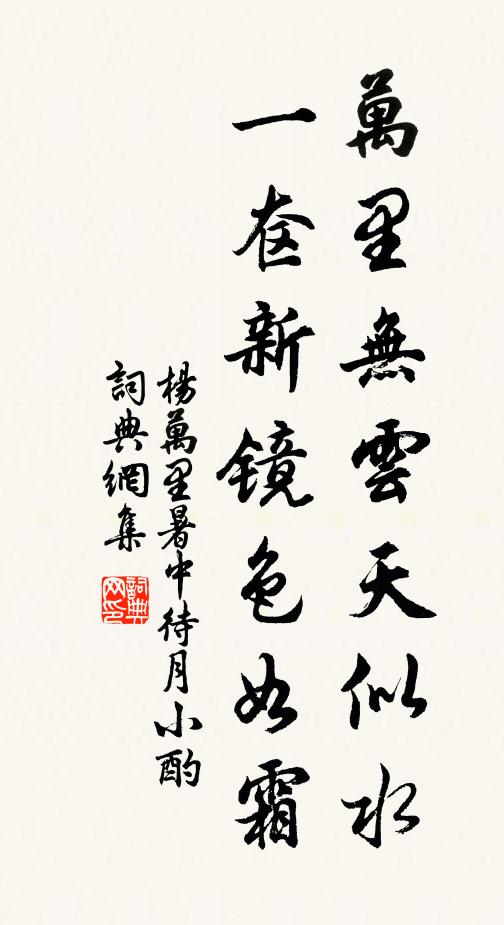 萬里無雲天似水
一奁新镜色如霜
楊萬里暑中待月小酌
詞典網集
詞典
网印